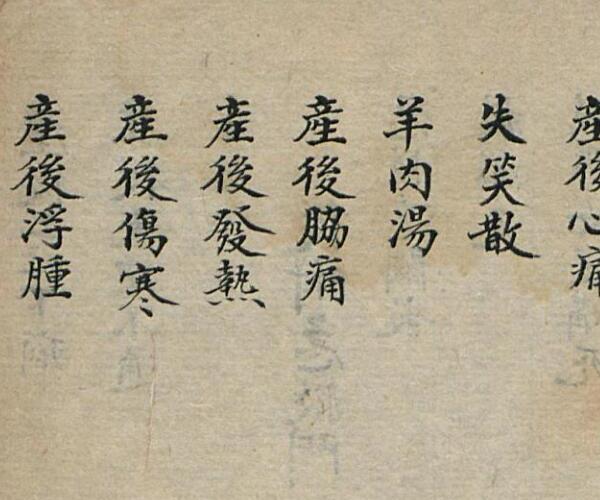 產後心痛
失笑散
羊肉湯
產後脇痛
產後發熱
產後傷寒
產後浮腫